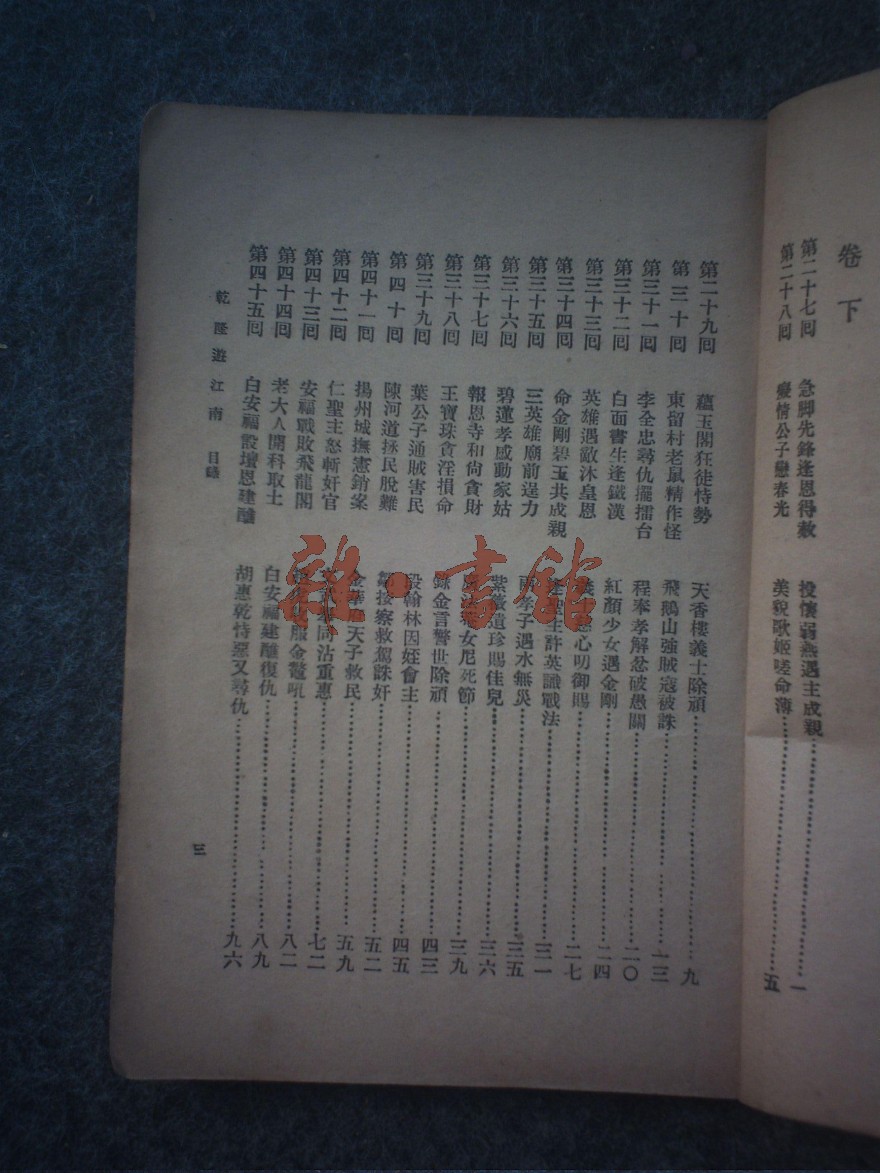 卷下
第二十七回 急脚先鋒逢恩得赦 投懷弱燕遇主成親 一
第二十八回 癡情公子戀春光 美貌歌姬嗟命薄 五
第二十九回 蘊玉閣狂徒恃勢 天香樓義士除頑 九
第三十回 東留村老鼠精作怪 飛鵝山強賊寇被誅 一三
第三十一回 李全忠尋仇擺擂台 程奉孝解忿破愚關 二〇
第三十二回 白面書生逢鐵漢 紅顏少女遇金剛 二四
第三十三回 英雄遇敵沐皇恩 心叨御賜 二七
第三十四回 命金剛碧玉共成親 主許英識戰法 三一
第三十五回 三英雄廟前逞力 孝子遇水無災 三五
第三十六回 碧蓮孝感動家姑 紫微遺珍賜佳兒 三六
第三十七回 報恩寺和尚貪財 女尼死節 三九
第三十八回 王寶珠貪淫損命 錄金言警世除頑 四三
第三十九回 葉公子通賊害民 段翰林因姪會主 四五
第四十回 陳河道拯民脫難 鄒按察救駕誅奸 五二
第四十一回 揚州城撫憲銷案 金華府天子救民 五九
第四十二回 仁聖主怒斬奸官 同沾重惠 七二
第四十三回 安福戰敗飛龍閣 服金鰲吼 八二
第四十四回 老大人開科取士 白安福建醮復仇 八九
第四十五回 白安福設壇恩建醮 胡惠乾恃惡又尋仇 九六
乾隆遊江南 目錄
三
雜·書館